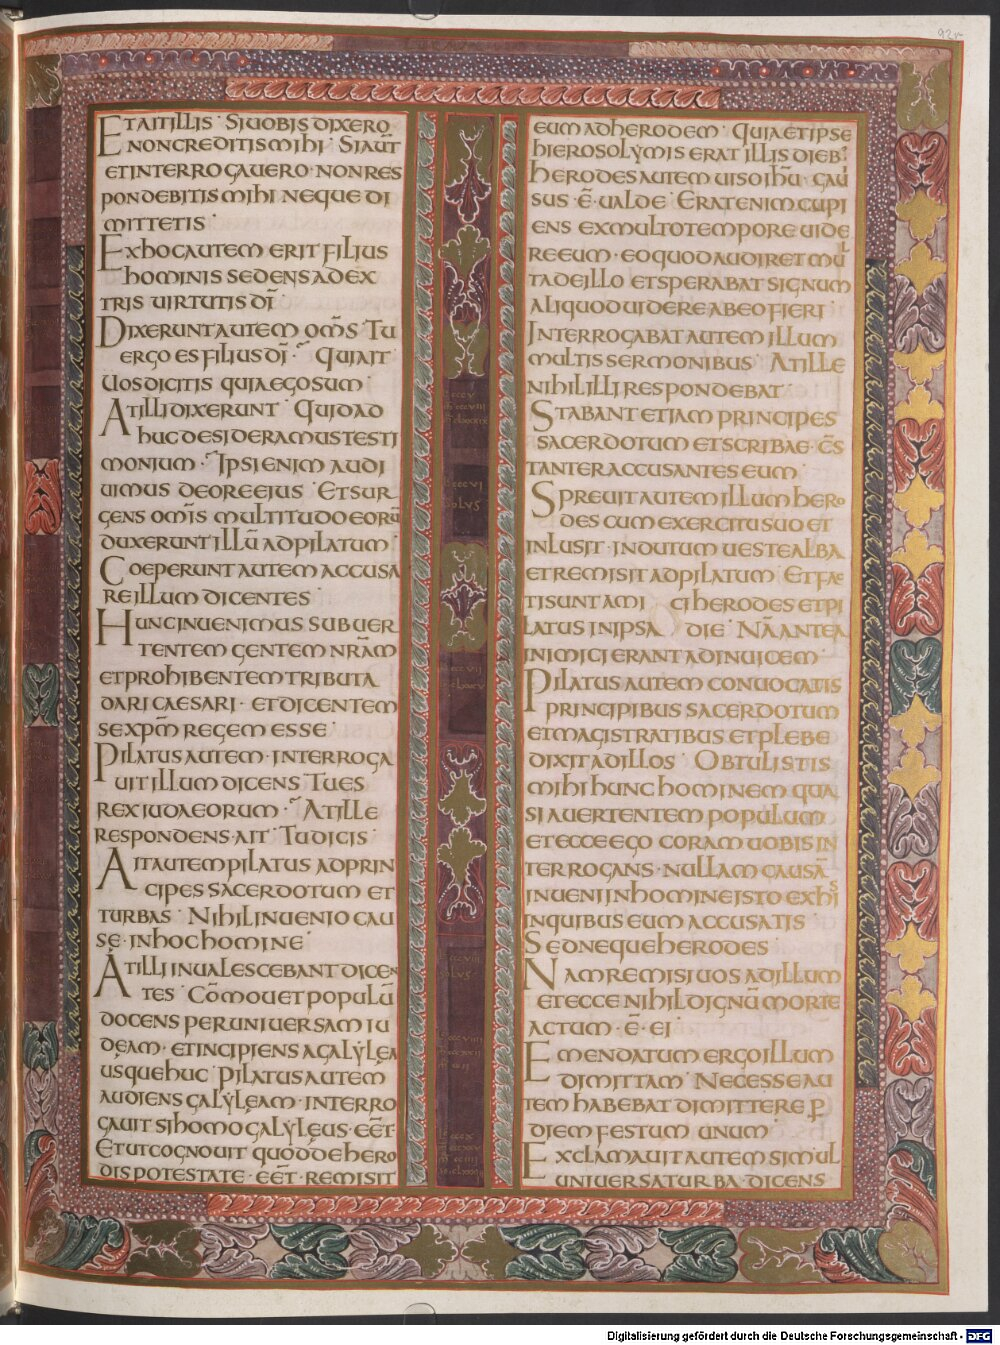 92r
ETAITILLIS · SIUOBIS DIXERO
NONCREDITIS MIHI · SIAŪT
ET INTERROGAVERO · NON RES
PONDEBITIS MIHI NEQUE DI
MITTETIS ·
EXHOC AUTEM ERIT FILIUS
HOMINIS SEDENS AD EX
TRIS UIRTUTIS DĪ
DIXERUNT AUTEM OM̄S · TU
ERGO ES FILIUS DĪ · QUI AIT
UOS DICITIS QUIA EGO SUM ·
AT ILLI DIXERUNT · QUID AD
HUC DESIDERAMUS TESTI
MONIUM · IPSI ENIM AUDI
UIMUS DE ORE EIUS · ET SUR
GENS OM̄IS MULTITUDO EORŪ
DUXERUNT ILLŪ AD PILATUM ·
COEPERUNT AUTEM ACCUSA
RE ILLUM DICENTES ·
HUNC INUENIMUS SUBUER
TENTEM GENTEM NR̄AM
ET PROHIBENTEM TRIBUTA
DARI CAESARI · ET DICENTEM
SE XP̄M REGEM ESSE ·
PILATUS AUTEM · INTERROGA
UIT ILLUM DICENS · TU ES
REX IUDAEORUM · AT ILLE
RESPONDENS · AIT · TU DICIS ·
AIT AUTEM PILATUS AD PRIN
CIPES SACERDOTUM ET
TURBAS · NIHIL INUENIO CAU
SĘ · IN HOC HOMINE ·
AT ILLI INUALESCEBANT DICEN
TES · CŌMOUET POPULŪ
DOCENS PER UNIUERSAM IU
DĘAM · ET INCIPIENS A GALYLĘA
USQUE HUC · PILATUS AUTEM
AUDIENS GALYLĘAM · INTERRO
GAUIT SI HOMO GALYLĘUS · EĒT ·
ET UT COGNOUIT QUOD DE HERO
DIS POTESTATE · EĒT · REMISIT
EUM AD HERODEM · QUIA ET IPSE
HIEROSOLYMIS ERAT ILLIS DIEB;
HERODES AUTEM UISO IHŪ · GAUI
SUS · Ē · UALDE · ERAT ENIM CUPI
ENS EX MULTO TEMPORE UIDE
RE EUM · EO QUOD AUDIRET MUL
TA DE ILLO ET SPERABAT SIGNUM
ALIQUOD UIDERE AB EO FIERI ·
INTERROGABAT AUTEM ILLUM
MULTIS SERMONIBUS · AT ILLE
NIHIL ILLI RESPONDEBAT ·
STABANT ETIAM PRINCIPES
SACERDOTUM ET SCRIBAE · CŌS
TANTER ACCUSANTES EUM ·
SPREUIT AUTEM ILLUM HERO
DES CUM EXERCITU SUO ET
INLUSIT · INDUTUM UESTE ALBA
ET REMISIT AD PILATUM · ET FAC
TI SUNT AMI CI HERODES ET PI
LATUS IN IPSA DIE · NĀ ANTEA
INIMICI ERANT AD INUICEM ·
PILATUS AUTEM CONUOCATIS
PRINCIPIBUS SACERDOTUM
ET MAGISTRATIBUS ET PLEBE
DIXIT AD ILLOS · OBTULISTIS
MIHI HUNC HOMINEM QUA
SI AUERTENTEM POPULUM
ET ECCE EGO CORAM UOBIS IN
TERROGANS · NULLAM CAUSĀ
INUENI IN HOMINE ISTO EX HIS
IN QUIBUS EUM ACCUSATIS ·
SED NEQUE HERODES ·
NAM REMISI UOS AD ILLUM
ET ECCE NIHIL DIGNŪ MORTE
ACTUM · Ē · EI ·
EMENDATUM ERGO ILLUM
DIMITTAM · NECESSE AU
TEM HABEBAT DIMITTERE P̱
DIEM FESTUM UNUM ·
EXCLAMAUIT AUTEM SIMUL
UNIUERSA TURBA · DICENS
Digitalisierung gefördert durch die Deutsche Forschungsgemeinschaft - DFG